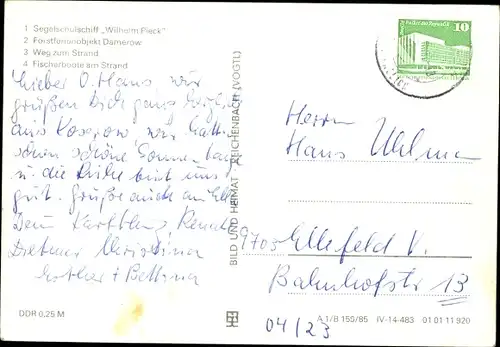 1 Segelschulschiff „Wilhelm Pieck“
2 Forstferienobjekt Damerow
3 Weg zum Strand
4 Fischerboote am Strand
Lieber O. Hans, wir
grüßen Dich ganz herzlich
aus Koserow, wir hatten
schon schöne Sonnentage
u. die Ruhe tut uns
gut. Grüße auch an
Dein Karl-Heinz, Renate
Dietmar Christina
Lothar + Bettina
DDR 0,25 M
BILD UND HEIMAT REICHENBACH (VOGTL)
10
Herrn
Hans Uhlmann
9703 Ellefeld V.
Bahnhofstr 13
A 1/B 155/85 IV-14-483 01 01 11 920
04/23